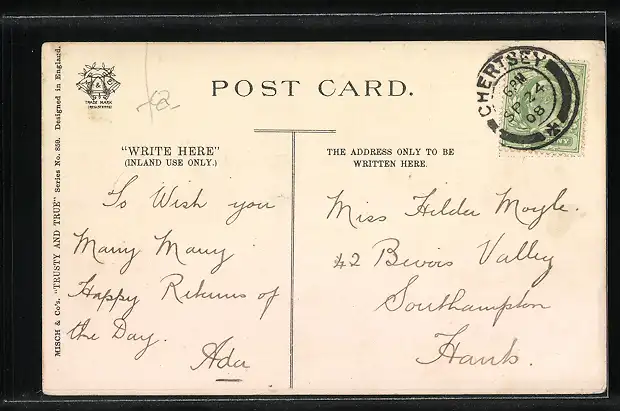 CHERTSEY
6 PM
SP 24
08
POST CARD.
TRADE MARK
"WRITE HERE"
(INLAND USE ONLY.)
To Wish you
Many Many
Happy Returns of
the Day.
Ada
THE ADDRESS ONLY TO BE
WRITTEN HERE.
Miss Hilda Moyle.
42 Bevois Valley
Southampton
Hants.
MISCH & Co's. "TRUSTY AND TRUE" Series No. 859. Designed in England.